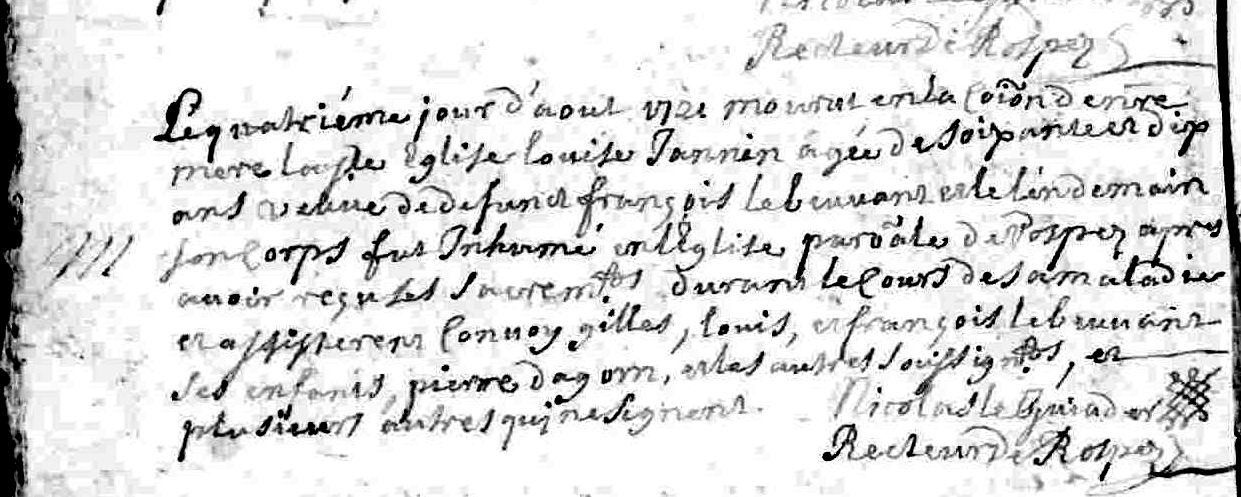 Recteur de Rospez
Le quatriéme jour d'aout 1721 mourut en la Coiõn de nre
mere la Ste Eglise louise Jannin agée de soixante et dix
ans veuve de defunct françois le beuvant et le lendemain
son Corps fut Inhumé en l'Eglise paroãle de Rospez apres
avoir reçu ses sacremts durant le Cours de sa maladie
et assisterent Convoy gilles, louis, et françois le beuvant
ses enfants, pierre dagorn, et les autres soussignts, et
plusieurs autres qui ne signent. Nicolas le Guiader
Recteur de Rospez